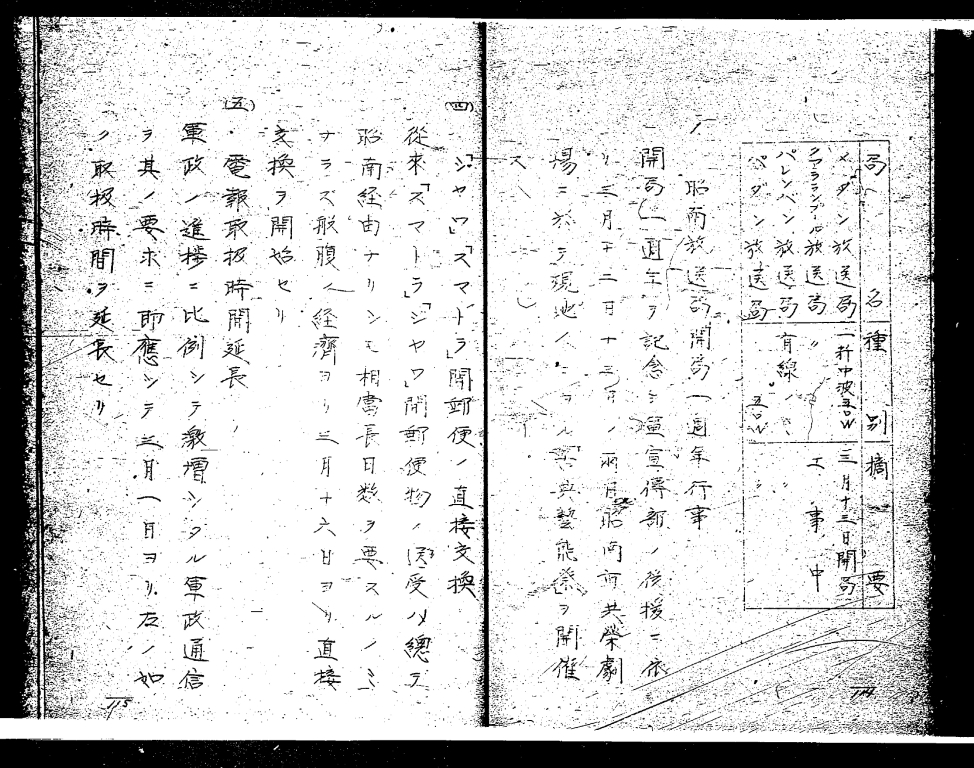 局名 種別 摘要
メダン放送局 一粁中波五〇W 三月十三日開局
クアラランプール放送局 〃
パレンバン放送局 有線 工事中
パダン放送局 五〇W
昭南放送局開局一週年行事
開局一週年ヲ記念シ宣傳部ノ後援ニ依
リ三月十二日十三日ノ兩日昭南市共榮劇
場ニ於テ現地人ニヨル藝能祭ヲ開催
ス
114
(四)「ジャワ」「スマトラ」間郵便ノ直接交換
從来「スマトラ」「ジャワ」間郵便物ノ送受ハ總テ
昭南経由ナリシモ相當長日数ヲ要スルノミ
ナラズ船腹ノ経濟ヨリ三月十六日ヨリ直接
交換ヲ開始セリ
(五)電報取扱時間延長
軍政ノ進捗ニ比例シテ激増シタル軍政通信
ヲ其ノ要求ニ即應シテ三月一日ヨリ左ノ如
ク取扱時間ヲ延長セリ
115